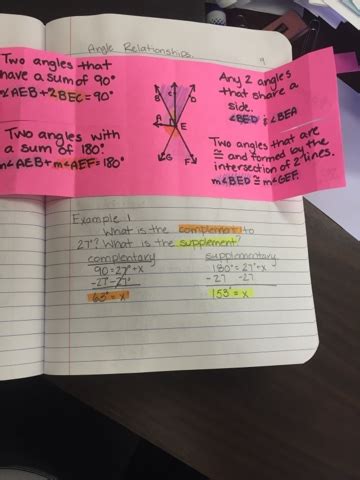 Angle Relationships.
9
Two angles that
have a sum of 90°
m∠AEB+∠BEC=90°
Two angles with
a sum of 180°
m∠AEB+m∠AEF=180°
B C D
A E
G F
Any 2 angles
that share a
side.
∠BED & ∠BEA
Two angles that are
≅ and formed by the
intersection of 2 lines.
m∠BED ≅ m∠GEF.
Example 1
What is the complement to
27°? What is the supplement?
complentary
90=27°+x
-27 -27°
63°=x
supplementary
180°=27°+x
-27 -27
153°=x